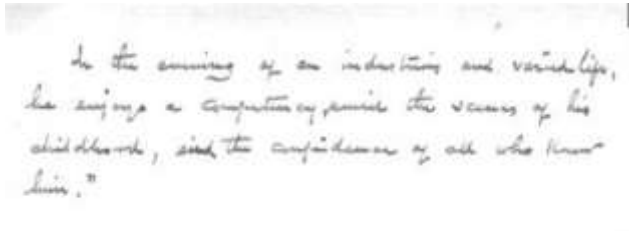 In the evening of an industrious and varied life,
he enjoys a competency, amid the scenes of his
childhood, and the confidence of all who know
him."